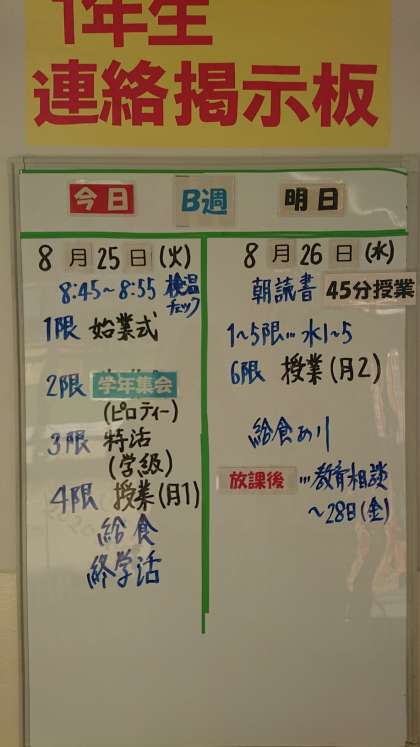 1年生
連絡掲示板
今日
B週
明日
8月25日(火)
8:45~8:55 検温チェック
1限 始業式
2限 学年集会
(ピロティー)
3限 特活
(学級)
4限 授業(月1)
給食
終学活
8月26日(水)
朝読書 45分授業
1~5限…水1~5
6限 授業(月2)
給食あり
放課後…教育相談
~28日(金)